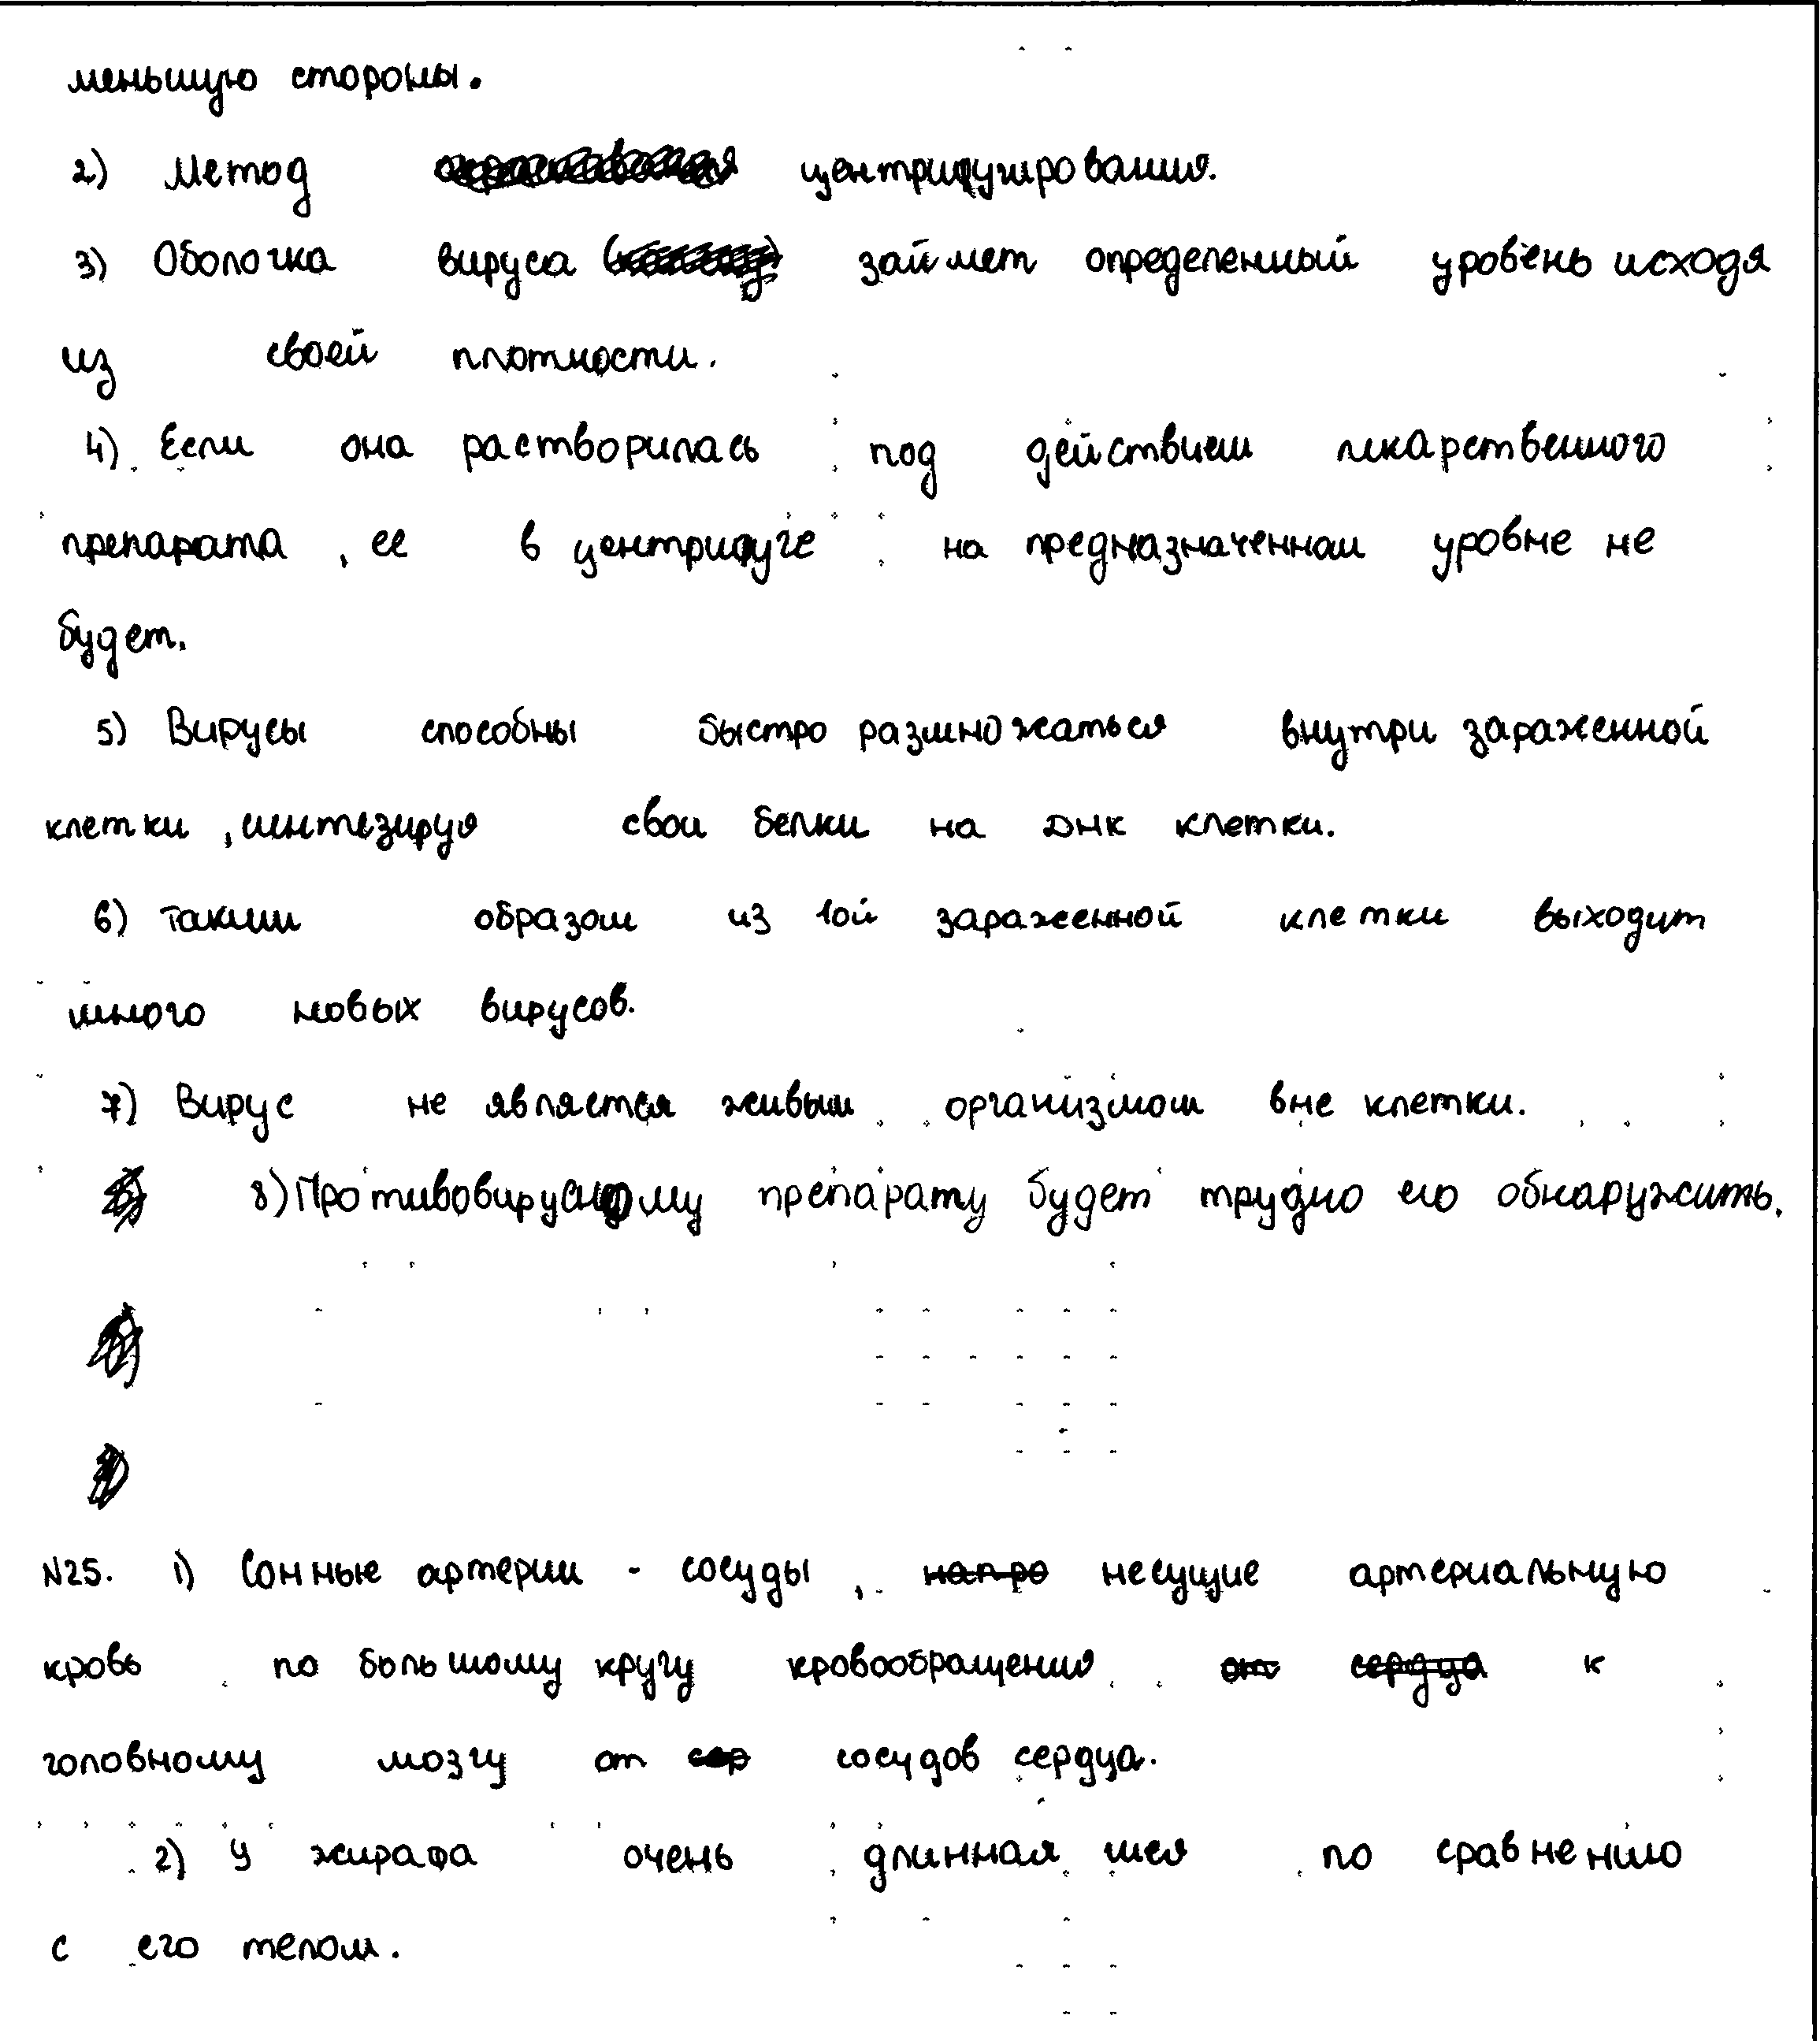 меньшую стороны.
2) Метод центрифугирования.
3) Оболочка вируса займет определенный уровень исходя
из своей плотности.
4) Если она растворилась под действием лекарственного
препарата, ее в центрифуге на предназначенном уровне не
будет.
5) Вирусы способны быстро размножаться внутри зараженной
клетки, синтезируя свои белки на ДНК клетки.
6) Таким образом из 1ой зараженной клетки выходит
много новых вирусов.
7) Вирус не является живым организмом вне клетки.
8) Противовирусному препарату будет трудно его обнаружить.
N25. 1) Сонные артерии - сосуды, напро несущие артериальную
кровь по большому кругу кровообращения от сердца к
головному мозгу от сер сосудов сердца.
2) У жирафа очень длинная шея по сравнению
с его телом.